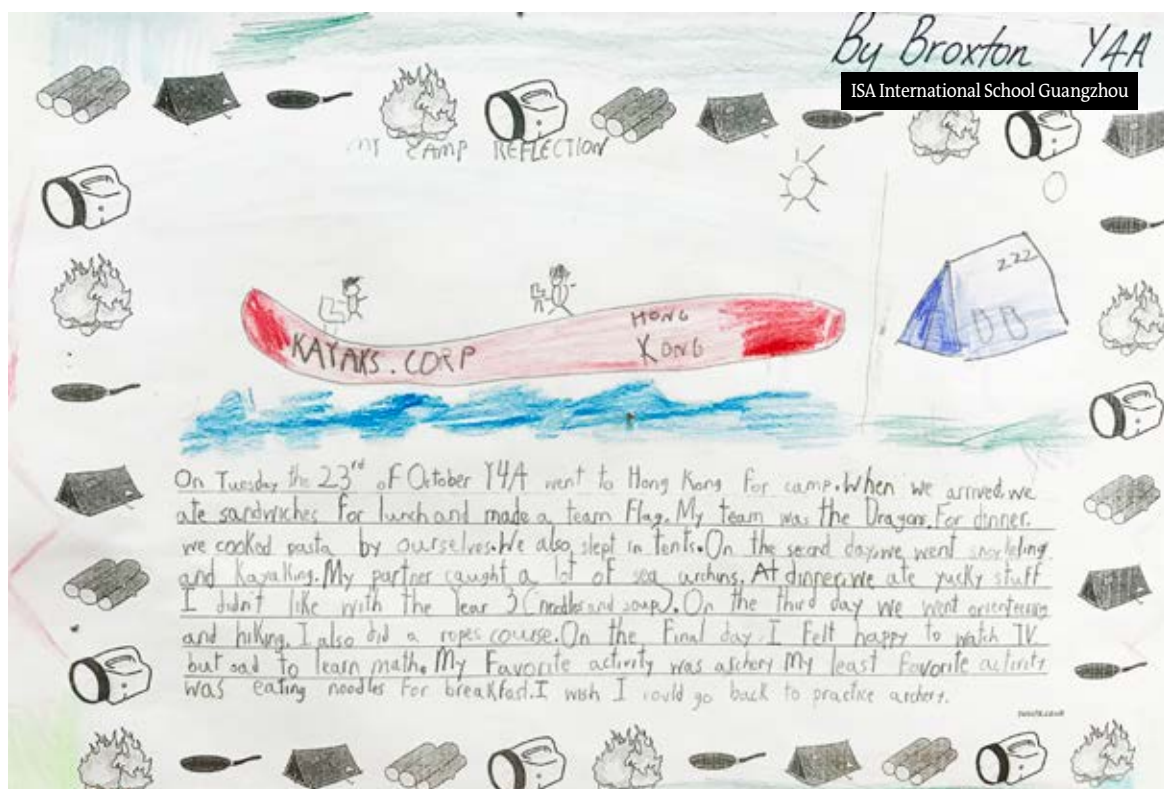 By Broxton Y4A
ISA International School Guangzhou
MY CAMP REFLECTION
ZZZ
HONG
KONG
KAYAKS.CORP
On Tuesday the 23rd of October Y4A went to Hong Kong for camp. When we arrived, we
ate sandwiches for lunch and made a team Flag. My team was the Dragons. For dinner,
we cooked pasta by ourselves. We also slept in tents. On the second day, we went snorkeling
and Kayaking. My partner caught a lot of sea archins. At dinner, we ate yucky stuff
I didn't like with the Year 3 (noodles and soup). On the third day we went orienteering
and hiking. I also did a ropes course. On the Final day, I felt happy to watch TV
but sad to learn math. My Favorite activity was archery My least favorite activity
was eating noodles for breakfast. I wish I could go back to practice archery.